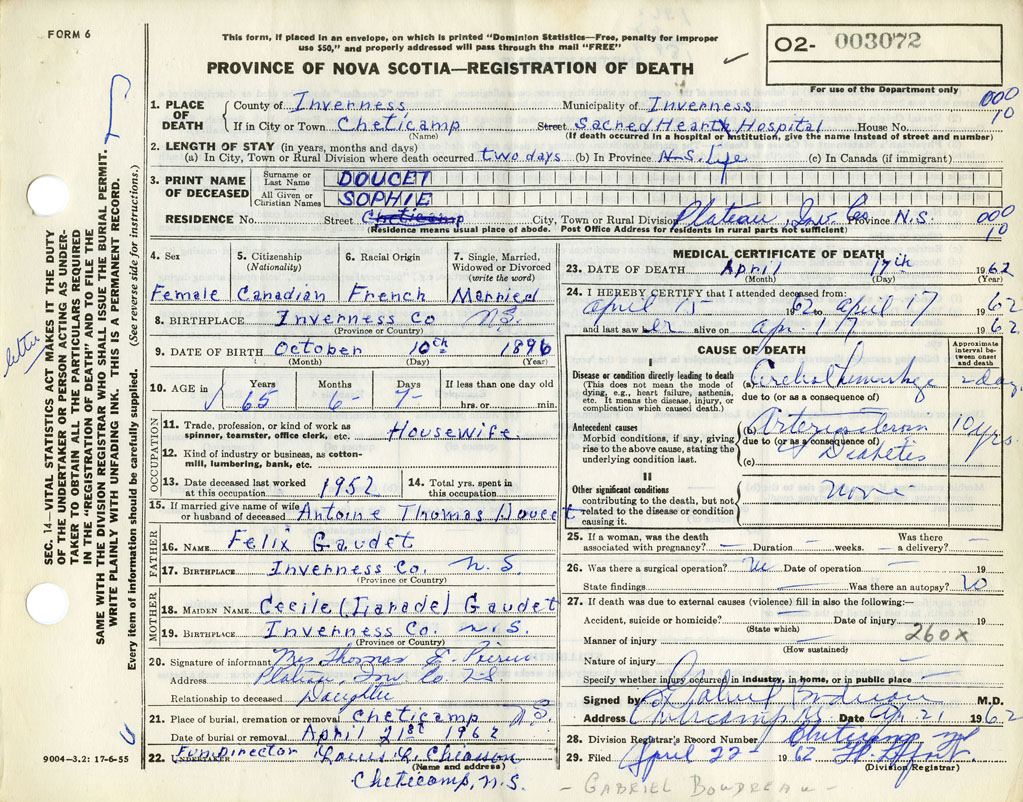 FORM 6
This form, if placed in an envelope, on which is printed "Dominion Statistics—Free, penalty for improper
use $50," and properly addressed will pass through the mail "FREE"
PROVINCE OF NOVA SCOTIA—REGISTRATION OF DEATH
02- 003072
For use of the Department only
1. PLACE OF DEATH County of Inverness Municipality of Inverness 000
If in City or Town Cheticamp Street Sacred Heart Hospital House No. 10
(Name) (If death occurred in a hospital or institution, give the name instead of street and number)
2. LENGTH OF STAY (in years, months and days)
(a) In City, Town or Rural Division where death occurred two days (b) In Province N.S. Life (c) In Canada (if immigrant)
3. PRINT NAME OF DECEASED Surname or Last Name DOUCET
All Given or Christian Names SOPHIE
RESIDENCE No. Street Cheticamp City, Town or Rural Division Plateau, Inv Co Province N.S. 000
(Residence means usual place of abode. Post Office Address for residents in rural parts not sufficient) 10
4. Sex 5. Citizenship (Nationality) 6. Racial Origin 7. Single, Married, Widowed or Divorced (write the word)
Female Canadian French Married
8. BIRTHPLACE Inverness Co N.S.
(Province or Country)
9. DATE OF BIRTH October 10th 1896
(Month) (Day) (Year)
10. AGE in Years Months Days If less than one day old
65 6 7 hrs. or min.
OCCUPATION
11. Trade, profession, or kind of work as spinner, teamster, office clerk, etc. Housewife
12. Kind of industry or business, as cotton-mill, lumbering, bank, etc.
13. Date deceased last worked at this occupation 1952 14. Total yrs. spent in this occupation
15. If married give name of wife or husband of deceased Antoine Thomas Doucet
FATHER
16. NAME Felix Gaudet
17. BIRTHPLACE Inverness Co. N.S.
(Province or Country)
MOTHER
18. MAIDEN NAME Cecile Gaudet
19. BIRTHPLACE Inverness Co. N.S.
(Province or Country)
20. Signature of informant Mrs Thomas E.
Address Plateau, Inv Co N S
Relationship to deceased Daughter
21. Place of burial, cremation or removal Cheticamp N.S.
Date of burial or removal April 21st 1962
22. UNDERTAKER Fun. Director Louis L. Chiasson
(Name and address)
Cheticamp, N.S.
MEDICAL CERTIFICATE OF DEATH
23. DATE OF DEATH April 17th 1962
(Month) (Day) (Year)
24. I HEREBY CERTIFY that I attended deceased from:
April 15 1962 to April 17 1962
and last saw her alive on Apr. 17 1962
CAUSE OF DEATH
Approximate interval between onset and death
I
Disease or condition directly leading to death
(This does not mean the mode of dying, e.g., heart failure, asthenia, etc. It means the disease, injury, or complication which caused death.)
(a) 2 days
due to (or as a consequence of)
Antecedent causes
Morbid conditions, if any, giving rise to the above cause, stating the underlying condition last.
(b) 10 yrs
due to (or as a consequence of)
(c) Diabetes
II
Other significant conditions contributing to the death, but not related to the disease or condition causing it. none
25. If a woman, was the death associated with pregnancy? — Duration — weeks. Was there a delivery? —
26. Was there a surgical operation? no Date of operation — 19
State findings Was there an autopsy? no
27. If death was due to external causes (violence) fill in also the following:—
Accident, suicide or homicide? Date of injury 19
(State which) 260x
Manner of injury
(How sustained)
Nature of injury
Specify whether injury occurred in industry, in home, or in public place
Signed by Gabriel Boudreau M.D.
Address Cheticamp Date Apr. 21 1962
28. Division Registrar's Record Number
29. Filed April 22 1962
(Division Registrar)
- GABRIEL BOUDREAU -
9004—3.2: 17-6-55
letter
SEC. 14—VITAL STATISTICS ACT MAKES IT THE DUTY
OF THE UNDERTAKER OR PERSON ACTING AS UNDER-
TAKER TO OBTAIN ALL THE PARTICULARS REQUIRED
IN THE "REGISTRATION OF DEATH" AND TO FILE THE
SAME WITH THE DIVISION REGISTRAR WHO SHALL ISSUE THE BURIAL PERMIT.
WRITE PLAINLY WITH UNFADING INK. THIS IS A PERMANENT RECORD.
Every item of information should be carefully supplied. (See reverse side for instructions.)